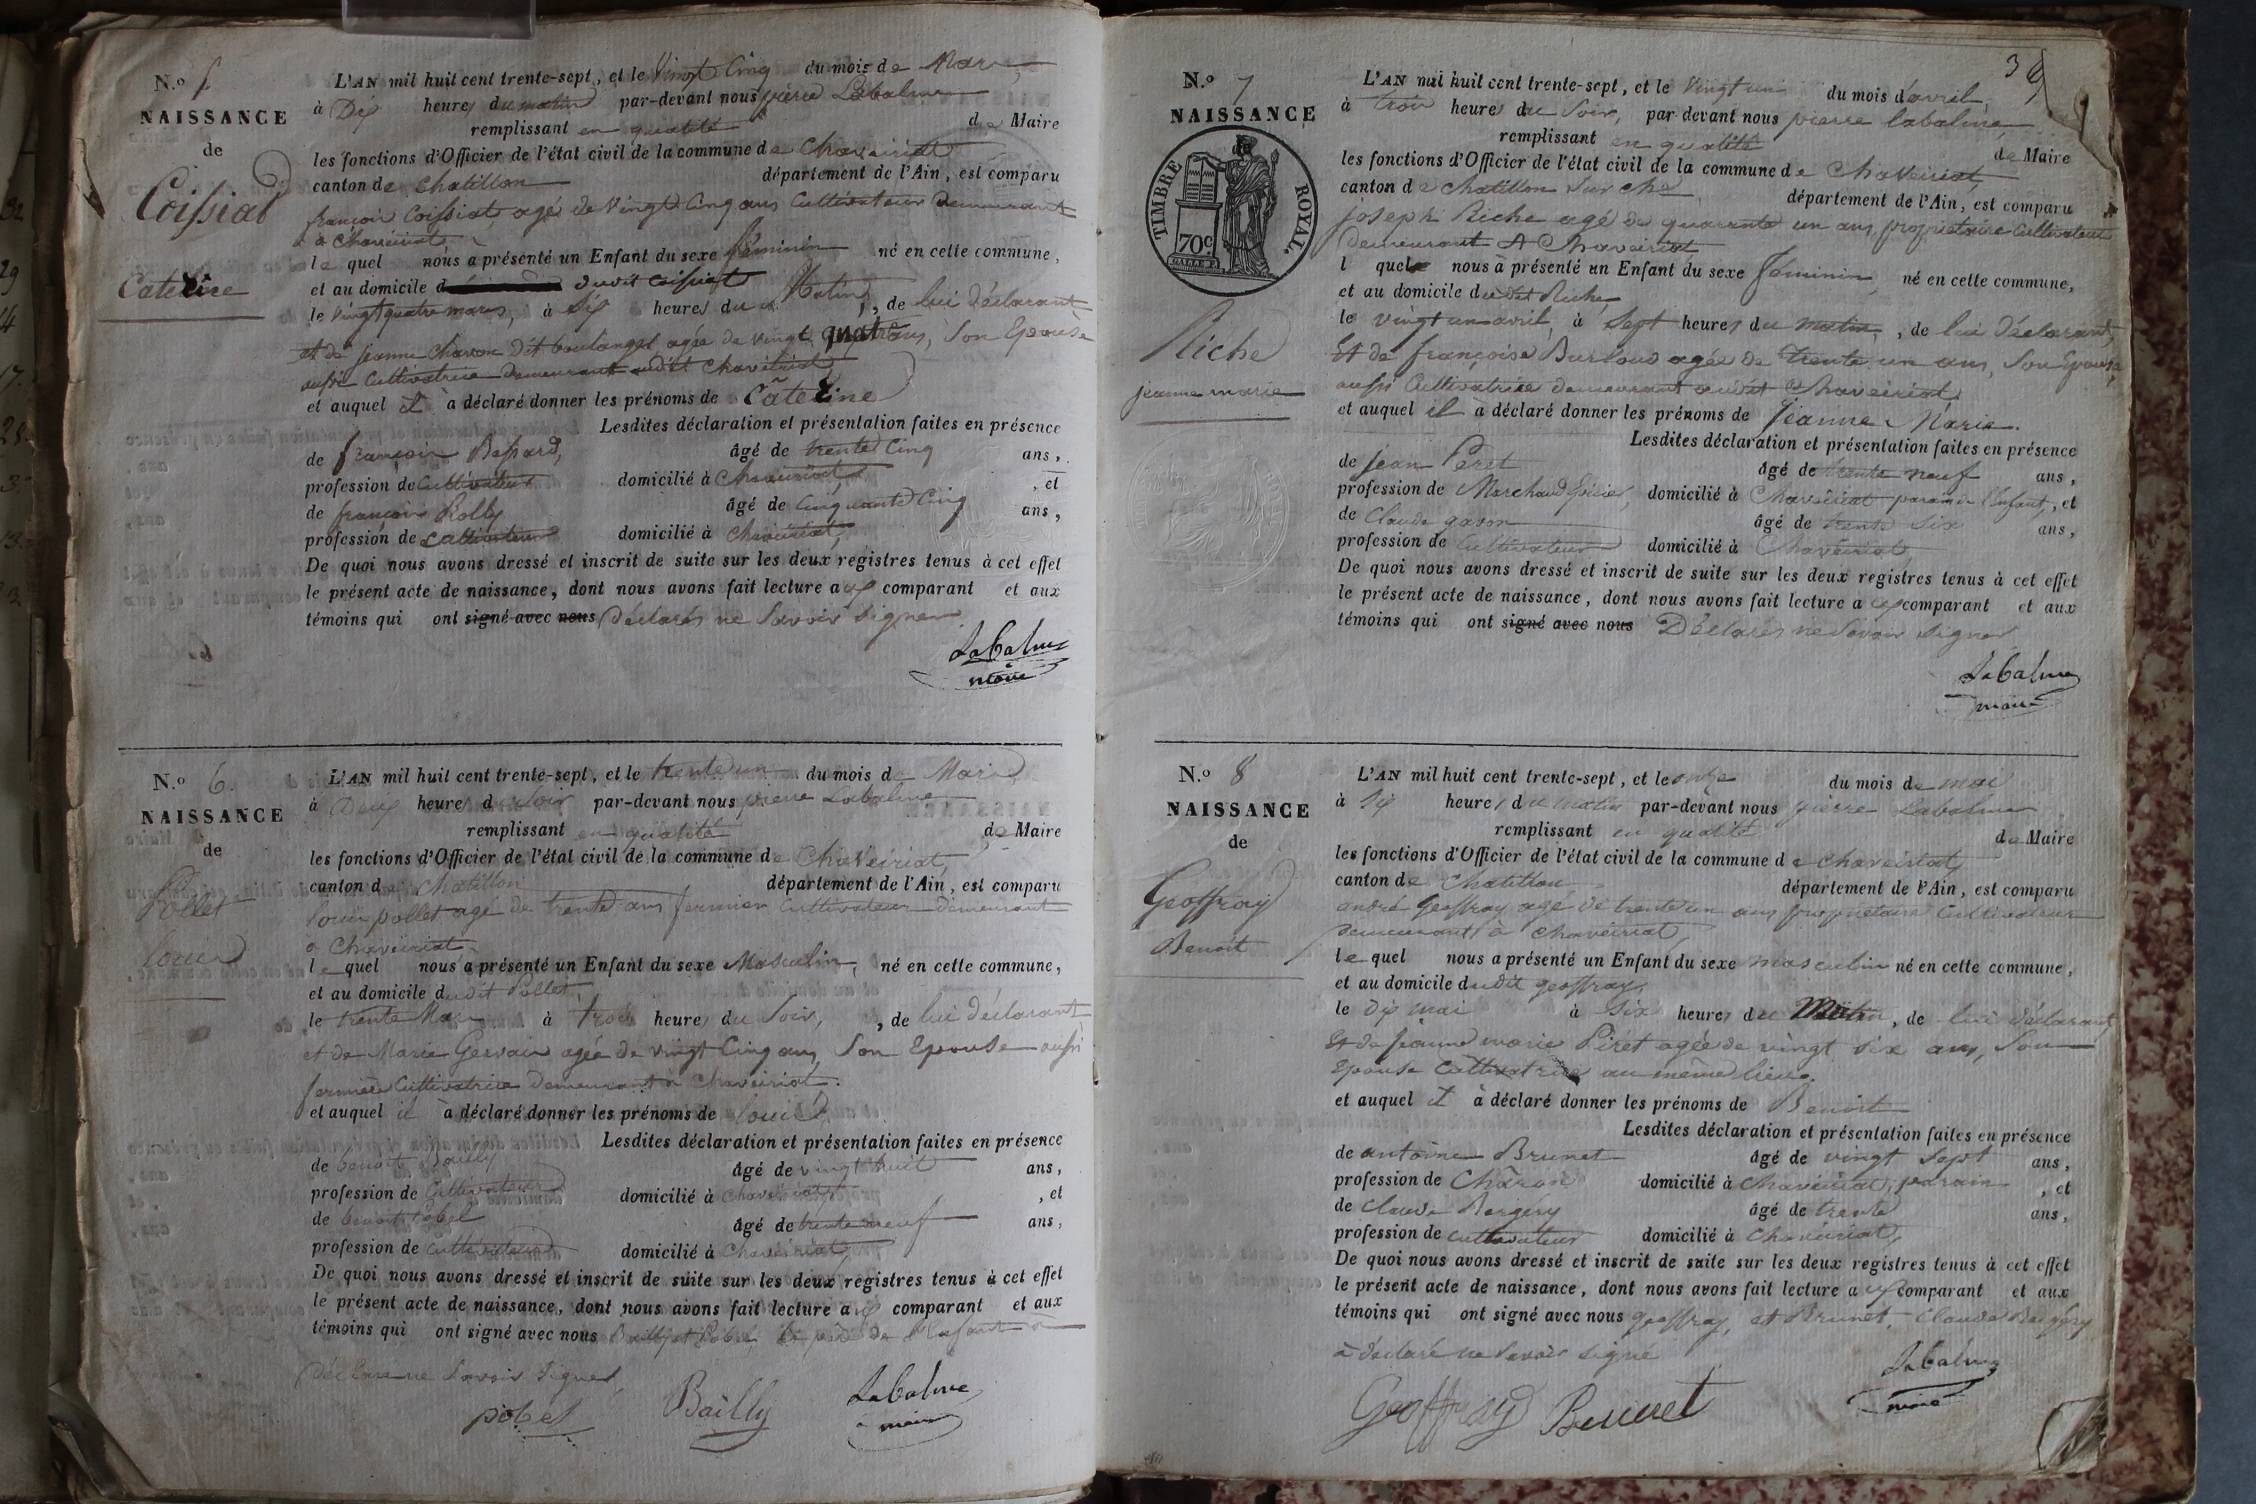 N.o 5
NAISSANCE
de
Coissiat
Caterine
L'AN mil huit cent trente-sept, et le Vingt Cinq du mois de Mars
à Dix heures du matin par-devant nous pierre Labalme
remplissant en qualité de Maire
les fonctions d'Officier de l'état civil de la commune de Chaveiriat
canton de Chatillon département de l'Ain, est comparu
françois Coissiat agé de Vingt Cinq ans Cultivateur Demeurant
à Chaveiriat
le quel nous a présenté un Enfant du sexe féminin né en cette commune,
et au domicile d dudit Coissiat
le Vingt quatre mars, à Six heures du Matin, de lui déclarant
et de jeanne Chavon Dit boulanget agée de vingt quatre ans, Son Epouse
aussi Cultivatrice Demeurant audit Chaveiriat
et auquel il a déclaré donner les prénoms de Caterine
Lesdites déclaration et présentation faites en présence
de françois Bessard, âgé de trente Cinq ans,
profession de Cultivateur domicilié à Chaveiriat, et
de françois Rolly âgé de Cinquante Cinq ans,
profession de Cultivateur domicilié à Chaveiriat,
De quoi nous avons dressé et inscrit de suite sur les deux registres tenus à cet effet
le présent acte de naissance, dont nous avons fait lecture aux comparant et aux
témoins qui ont signé avec nous Déclarés ne Savoir Signer
Labalme
maire
N.o 6.
NAISSANCE
de
Pollet
louis
L'AN mil huit cent trente-sept, et le trente un du mois de Mars
à Deux heures d Soir par-devant nous pierre Labalme
remplissant en qualité de Maire
les fonctions d'Officier de l'état civil de la commune de Chaveiriat,
canton de Chatillon département de l'Ain, est comparu
louis pollet agé de trente ans fermier Cultivateur demeurant
à Chaveiriat
le quel nous a présenté un Enfant du sexe Masculin, né en cette commune,
et au domicile dudit Pollet,
le trente Mars à trois heures du Soir, de lui déclarant
et de Marie Gervais agée de vingt Cinq ans, Son Epouse aussi
fermière Cultivatrice Demeurant à Chaveiriat.
et auquel il a déclaré donner les prénoms de louis
Lesdites déclaration et présentation faites en présence
de benoit Bailly âgé de vingt huit ans,
profession de Cultivateur domicilié à Chaveiriat, et
de benoit Pobel âgé de trente neuf ans,
profession de Cultivateur domicilié à Chaveiriat,
De quoi nous avons dressé et inscrit de suite sur les deux registres tenus à cet effet
le présent acte de naissance, dont nous avons fait lecture aux comparant et aux
témoins qui ont signé avec nous Bailly et Pobel, le père de l'Enfant a
déclaré ne Savoir Signer,
pobel Bailly Labalme
maire
39
N.o 7
NAISSANCE
TIMBRE ROYAL.
70c
Riche
jeanne marie
L'AN mil huit cent trente-sept, et le Vingt un du mois d'avril,
à trois heures du Soir, par-devant nous pierre labalme
remplissant en qualité de Maire
les fonctions d'Officier de l'état civil de la commune de Chaveiriat,
canton de Chatillon Sur Che département de l'Ain, est comparu
joseph Riche agé de quarante un ans, propriétaire Cultivateur
Demeurant A Chaveiriat
l quel nous a présenté un Enfant du sexe féminin, né en cette commune,
et au domicile dudit Riche
le vingt un avril, à Sept heures du matin, de lui déclarant,
Et de françoise Burloud agée de trente un ans, Son Epouse
aussi Cultivatrice demeurant audit Chaveiriat,
et auquel il a déclaré donner les prénoms de Jeanne Marie.
Lesdites déclaration et présentation faites en présence
de jean Peret âgé de trente neuf ans,
profession de Marchand Epicier, domicilié à Chaveiriat parain de l'Enfant, et
de Claude gavon âgé de trente Six ans,
profession de Cultivateur domicilié à Chaveiriat,
De quoi nous avons dressé et inscrit de suite sur les deux registres tenus à cet effet
le présent acte de naissance, dont nous avons fait lecture aux comparant et aux
témoins qui ont signé avec nous Déclarés ne Savoir Signer
Labalme
maire
N.o 8
NAISSANCE
de
Geoffray
Benoit
L'AN mil huit cent trente-sept, et le onze du mois de mai
à Six heures du matin par-devant nous pierre Labalme
remplissant en qualité de Maire
les fonctions d'Officier de l'état civil de la commune de Chaveiriat,
canton de Chatillon département de l'Ain, est comparu
andré Geoffray agé de trente un ans propriétaire Cultivateur
Demeurant à Chaveiriat,
le quel nous a présenté un Enfant du sexe masculin né en cette commune,
et au domicile dudit geoffray.
le dix mai à Six heures du Matin, de lui déclarant,
Et de jeanne marie Péret agée de vingt six ans, Son
Epouse Cultivatrice au même lieu.
et auquel il a déclaré donner les prénoms de Benoit
Lesdites déclaration et présentation faites en présence
de antoine Brunet âgé de vingt Sept ans,
profession de Charon domicilié à Chaveiriat, parain, et
de Claude Bergéry âgé de trente ans,
profession de Cultivateur domicilié à Chaveiriat,
De quoi nous avons dressé et inscrit de suite sur les deux registres tenus à cet effet
le présent acte de naissance, dont nous avons fait lecture aux comparant et aux
témoins qui ont signé avec nous geoffray, et Brunet, Claude Bergéry
a déclaré ne Savoir Signé
Geoffray Brunet Labalme
maire